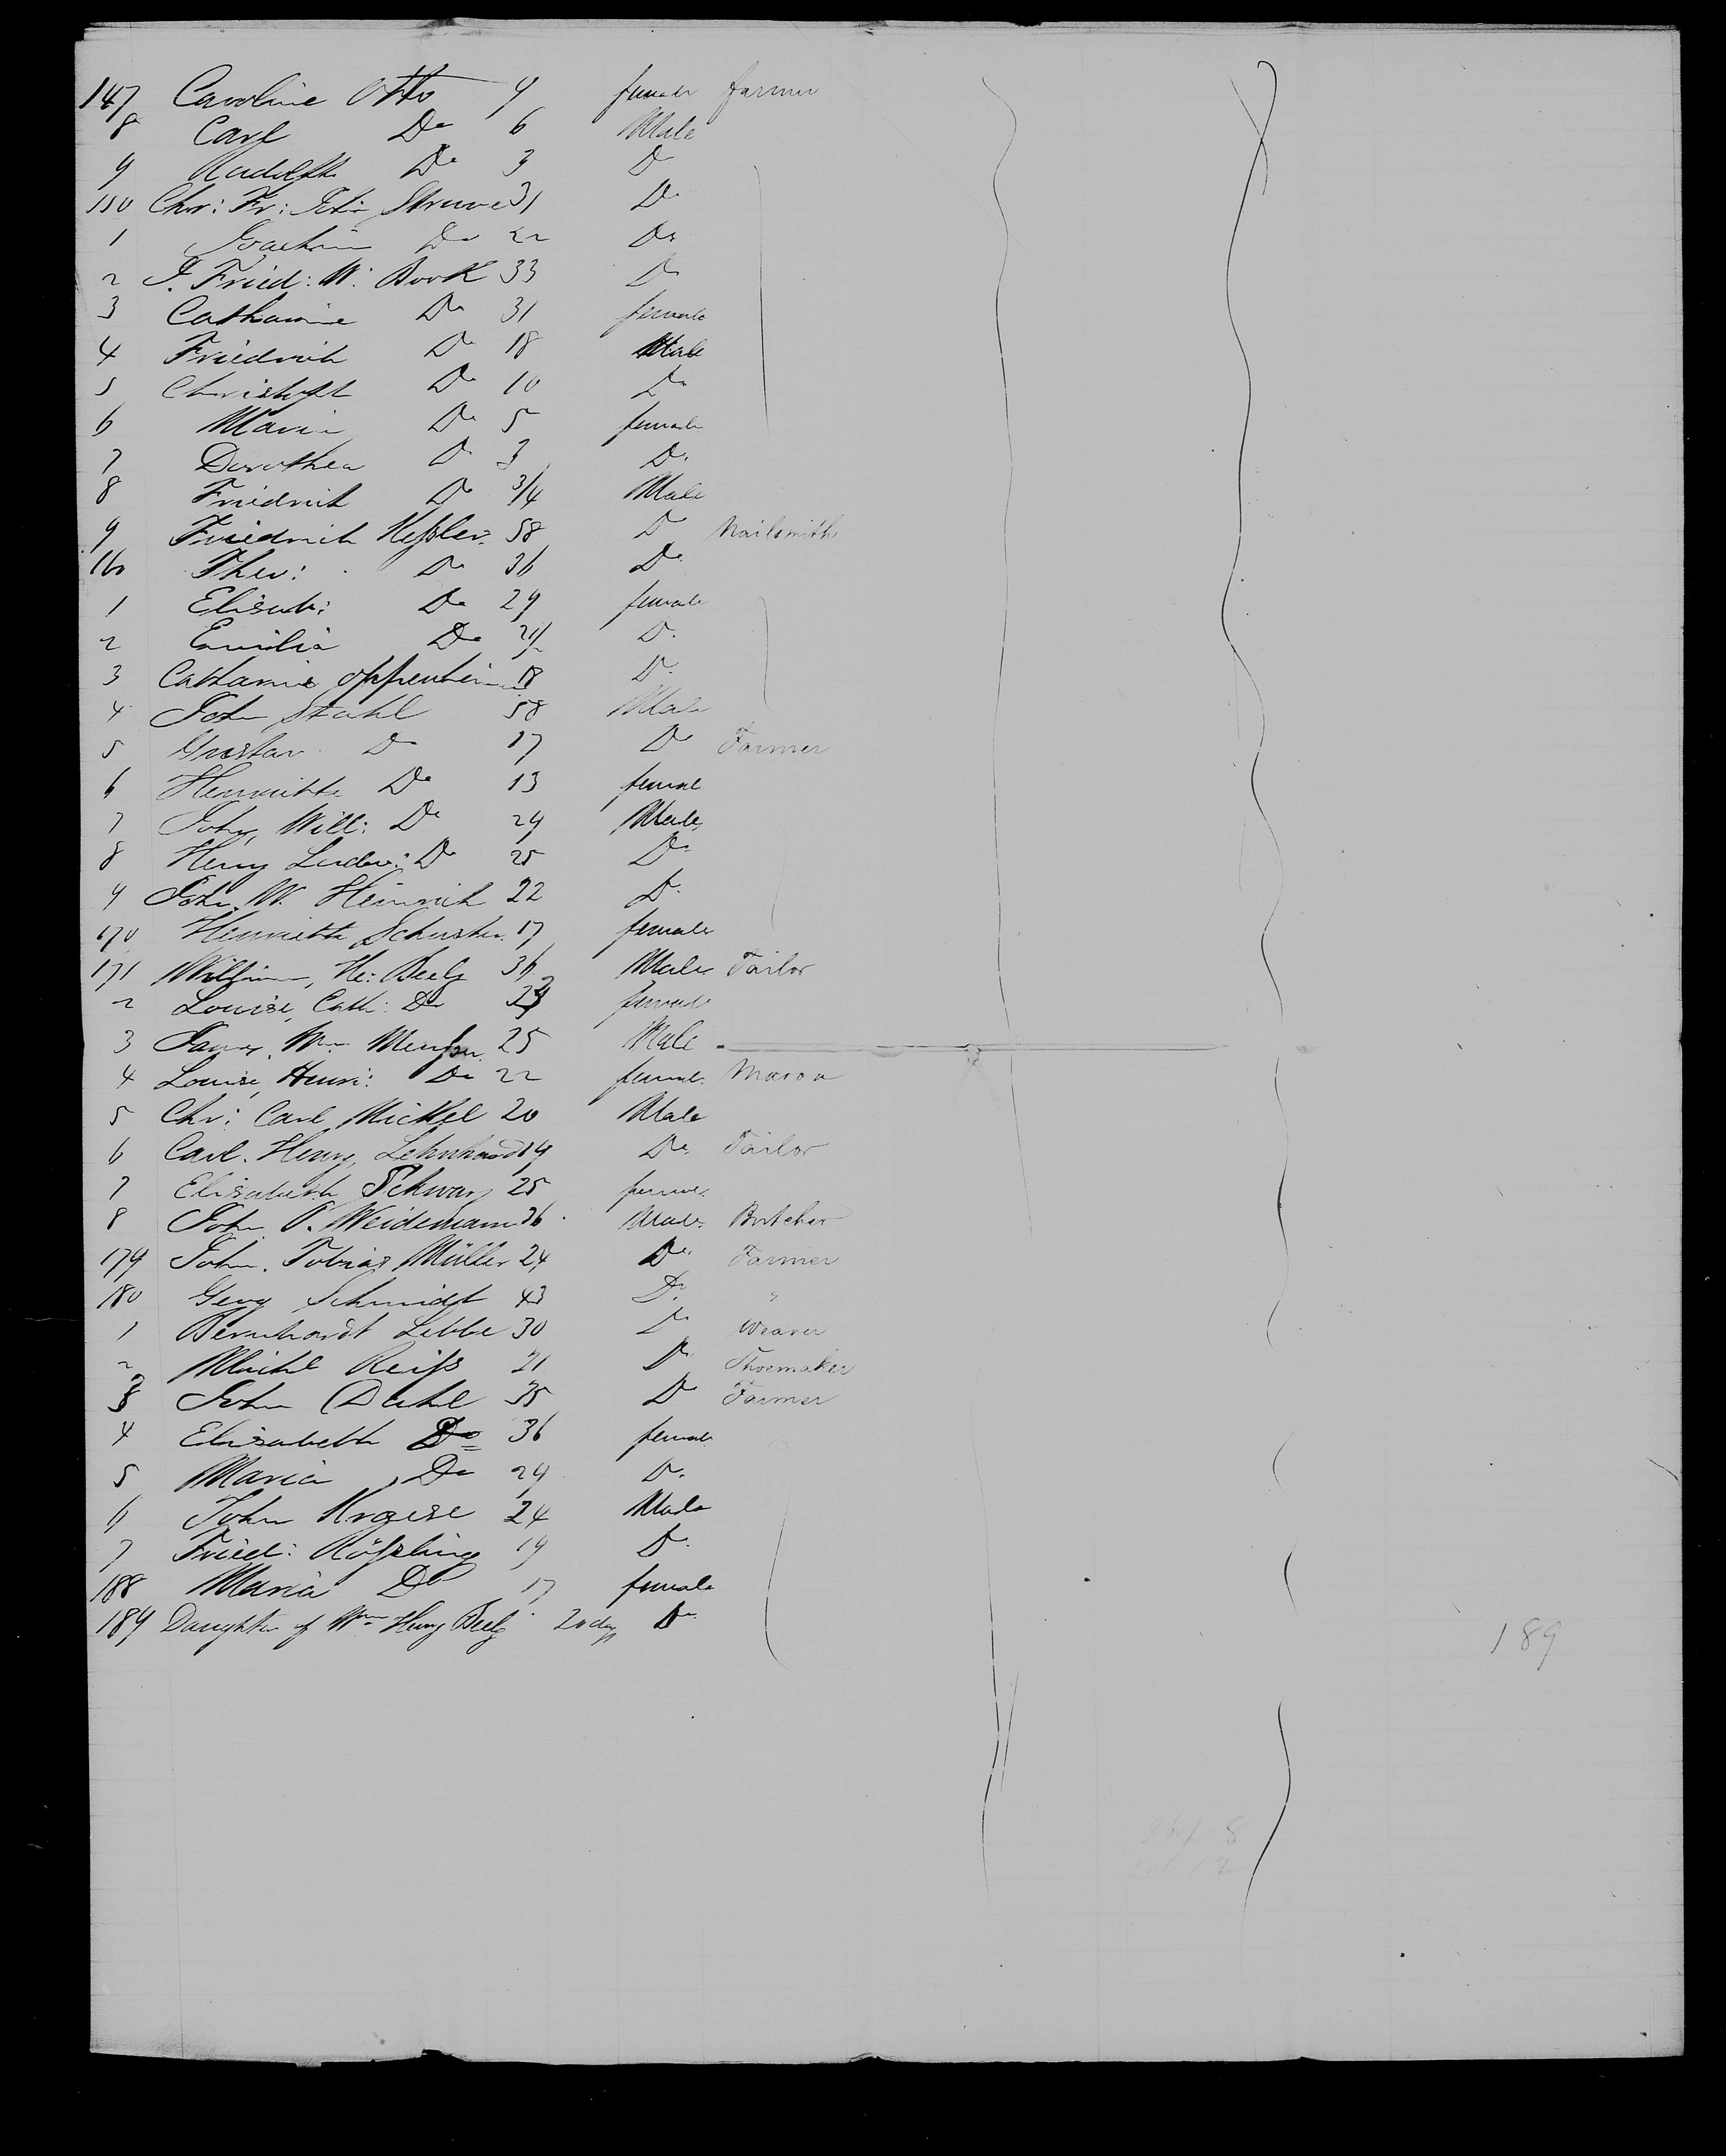 147 Caroline Otto 9 female farmer
8 Carl Do 6 Male
9 Rudolph Do 3 Do
150 Chr: Fr: John Struve 31 Do
1 Joachim Do 22 Do
2 J. Fried: W: Book 33 Do
3 Catharine Do 31 female
4 Friedrich Do 18 Male
5 Christoph Do 10 Do
6 Maria Do 5 female
7 Dorothea Do 3 Do
8 Friedrich Do 3/4 Male
9 Friedrich Keſsler 58 Do Nailsmith
160 Theo: Do 36 Do
1 Elisab: Do 29 female
2 Emilia Do 2 1/2 Do
3 Catharine Oppenheim 18 Do
4 John Stahl 58 Male
5 Gustav Do 17 Do Farmer
6 Henriette Do 13 female
7 John, Will: Do 29 Male
8 Henry Ludw: Do 25 Do
9 John. W. Heinrich 22 Do
170 Henriette Schuster 17 female
171 William, He: Beelz 36 Male Tailor
2 Louise, Cath: Do female
3 Wm 25 Male
4 Louise, Henri: Do 22 female Mason
5 Chr: Carl Mickel 20 Male
6 Carl. Henry, Lehnhardt 19 Do Tailor
7 Elisabeth Schwarz 25 female
8 John P. Weidemann 36 Male Butcher
179 John. Tobias Müller 24 Do Farmer
180 Georg Schmidt 43 Do "
1 Bernhardt Libbe 30 Do Weaver
2 Michl Reiſs 21 Do Shoemaker
3 John Dahl 35 Do Farmer
4 Elisabeth Do 36 female
5 Maria Do 24 Do
6 John Krause 24 Male
7 Fried: Röſsling 19 Do
188 Maria Do 17 female
189 Daughter of Wm Henry Beelz 20 days Do
189